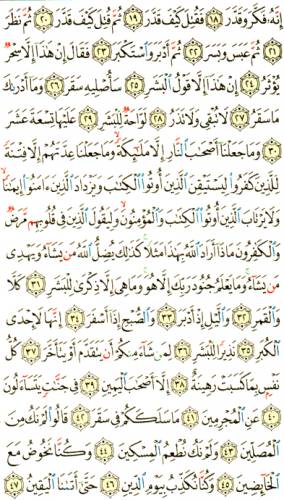 إِنَّهُۥ فَكَّرَ وَقَدَّرَ ١٨ فَقُتِلَ كَيۡفَ قَدَّرَ ١٩ ثُمَّ قُتِلَ كَيۡفَ قَدَّرَ ٢٠ ثُمَّ نَظَرَ
٢١ ثُمَّ عَبَسَ وَبَسَرَ ٢٢ ثُمَّ أَدۡبَرَ وَٱسۡتَكۡبَرَ ٢٣ فَقَالَ إِنۡ هَٰذَآ إِلَّا سِحۡرٞ
يُؤۡثَرُ ٢٤ إِنۡ هَٰذَآ إِلَّا قَوۡلُ ٱلۡبَشَرِ ٢٥ سَأُصۡلِيهِ سَقَرَ ٢٦ وَمَآ أَدۡرَىٰكَ
مَا سَقَرُ ٢٧ لَا تُبۡقِي وَلَا تَذَرُ ٢٨ لَوَّاحَةٞ لِّلۡبَشَرِ ٢٩ عَلَيۡهَا تِسۡعَةَ عَشَرَ
٣٠ وَمَا جَعَلۡنَآ أَصۡحَٰبَ ٱلنَّارِ إِلَّا مَلَٰٓئِكَةٗ وَمَا جَعَلۡنَا عِدَّتَهُمۡ إِلَّا فِتۡنَةٗ
لِّلَّذِينَ كَفَرُواْ لِيَسۡتَيۡقِنَ ٱلَّذِينَ أُوتُواْ ٱلۡكِتَٰبَ وَيَزۡدَادَ ٱلَّذِينَ ءَامَنُوٓاْ إِيمَٰنٗا
وَلَا يَرۡتَابَ ٱلَّذِينَ أُوتُواْ ٱلۡكِتَٰبَ وَٱلۡمُؤۡمِنُونَ وَلِيَقُولَ ٱلَّذِينَ فِي قُلُوبِهِم مَّرَضٞ
وَٱلۡكَٰفِرُونَ مَاذَآ أَرَادَ ٱللَّهُ بِهَٰذَا مَثَلٗا كَذَٰلِكَ يُضِلُّ ٱللَّهُ مَن يَشَآءُ وَيَهۡدِي
مَن يَشَآءُ وَمَا يَعۡلَمُ جُنُودَ رَبِّكَ إِلَّا هُوَ وَمَا هِيَ إِلَّا ذِكۡرَىٰ لِلۡبَشَرِ ٣١ كَلَّا
وَٱلۡقَمَرِ ٣٢ وَٱلَّيۡلِ إِذۡ أَدۡبَرَ ٣٣ وَٱلصُّبۡحِ إِذَآ أَسۡفَرَ ٣٤ إِنَّهَا لَإِحۡدَى
ٱلۡكُبَرِ ٣٥ نَذِيرٗا لِّلۡبَشَرِ ٣٦ لِمَن شَآءَ مِنكُمۡ أَن يَتَقَدَّمَ أَوۡ يَتَأَخَّرَ ٣٧ كُلُّ
نَفۡسِۭ بِمَا كَسَبَتۡ رَهِينَةٌ ٣٨ إِلَّآ أَصۡحَٰبَ ٱلۡيَمِينِ ٣٩ فِي جَنَّٰتٖ يَتَسَآءَلُونَ
٤٠ عَنِ ٱلۡمُجۡرِمِينَ ٤١ مَا سَلَكَكُمۡ فِي سَقَرَ ٤٢ قَالُواْ لَمۡ نَكُ مِنَ
ٱلۡمُصَلِّينَ ٤٣ وَلَمۡ نَكُ نُطۡعِمُ ٱلۡمِسۡكِينَ ٤٤ وَكُنَّا نَخُوضُ مَعَ
ٱلۡخَآئِضِينَ ٤٥ وَكُنَّا نُكَذِّبُ بِيَوۡمِ ٱلدِّينِ ٤٦ حَتَّىٰٓ أَتَىٰنَا ٱلۡيَقِينُ ٤٧